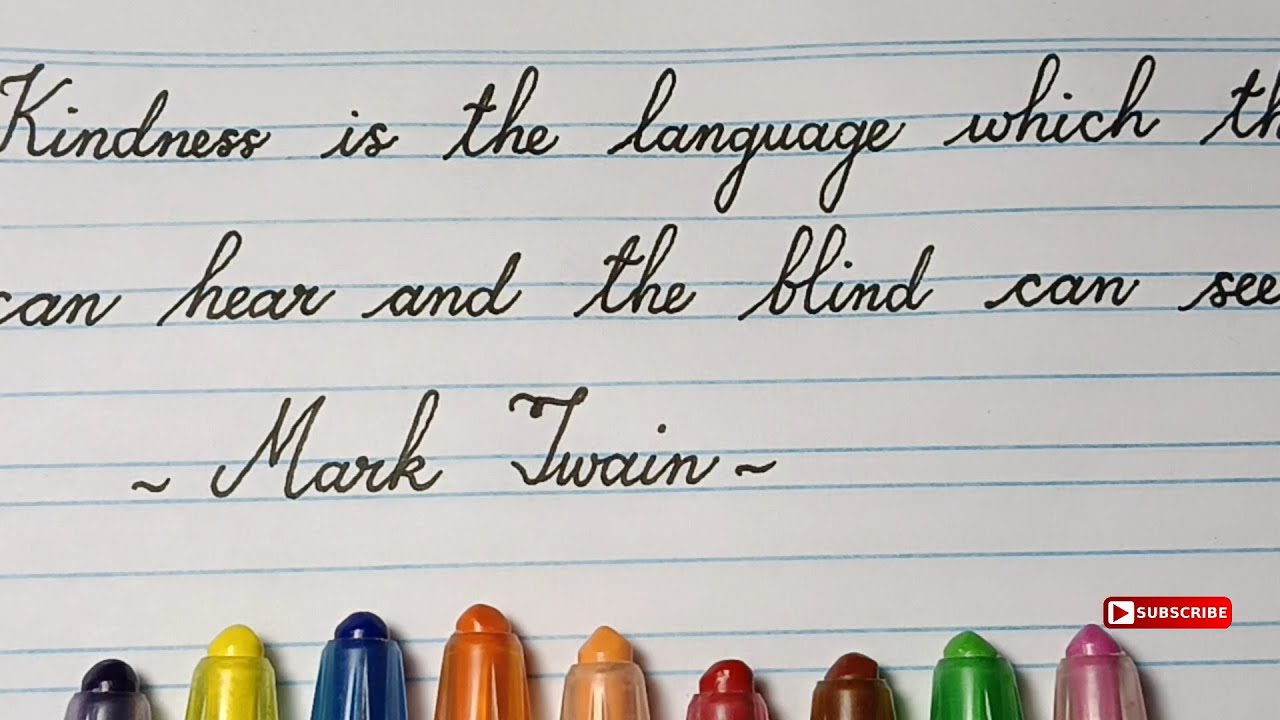 Kindness is the language which th
can hear and the blind can see
~ Mark Twain ~
SUBSCRIBE